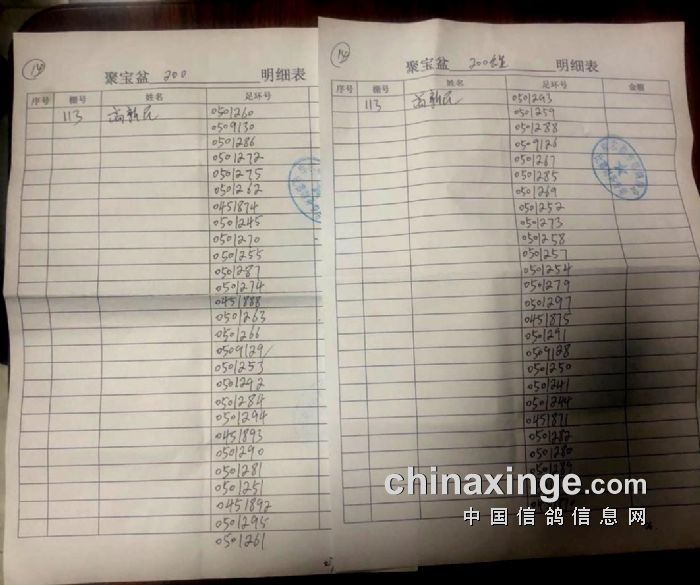 聚宝盆 200 明细表
序号 棚号 姓名 足环号
113 尚新民 0501260
0509130
0501286
0501272
0501275
0501262
0451874
0501245
0501270
0501255
0501287
0501274
0451888
0501263
0501266
0509129
0501253
0501292
0501284
0501294
0451893
0501290
0501281
0501251
0451892
0501295
0501261
聚宝盆 200 明细表
序号 棚号 姓名 足环号 金额
113 尚新民 0501293
0501259
0501288
0509126
0501267
0501285
0501269
0501252
0501273
0501258
0501257
0501254
0501279
0501297
0451875
0501291
0509128
0501250
0501241
0501244
0451871
0501282
0501280
0501289
chinaxinge.com
中国信鸽信息网